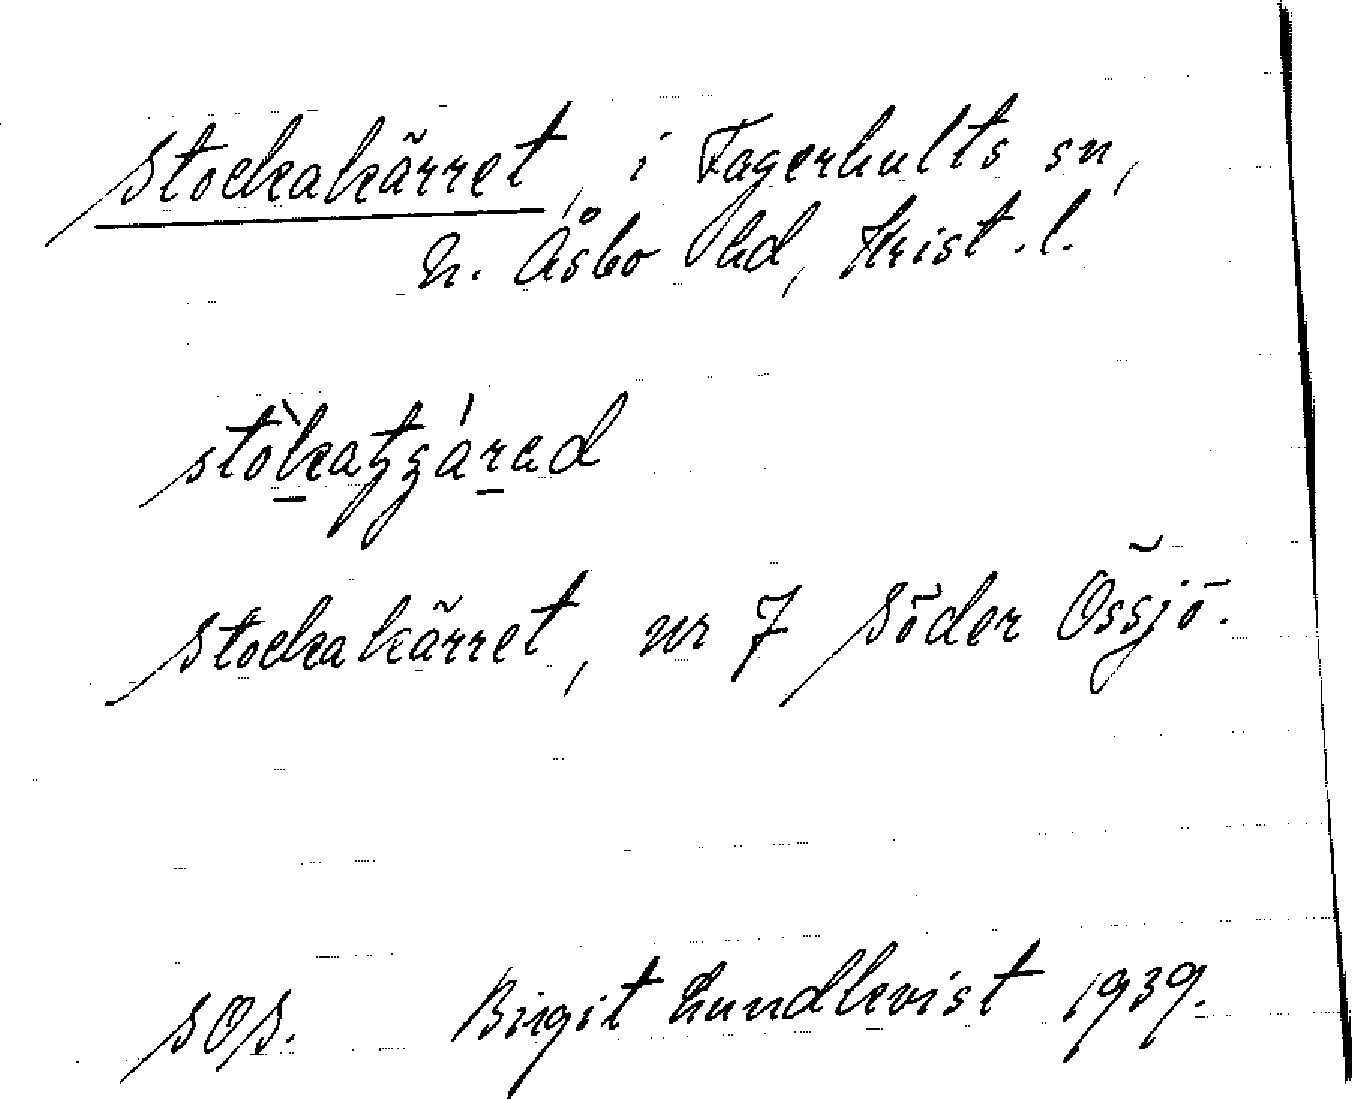 Stockakärret, i Fagerhults sn,
N. Åsbo hd, Krist. l.
Stockakärret, nr 7 Söder Össjö.
SOS. Birgit Lundkvist 1939.